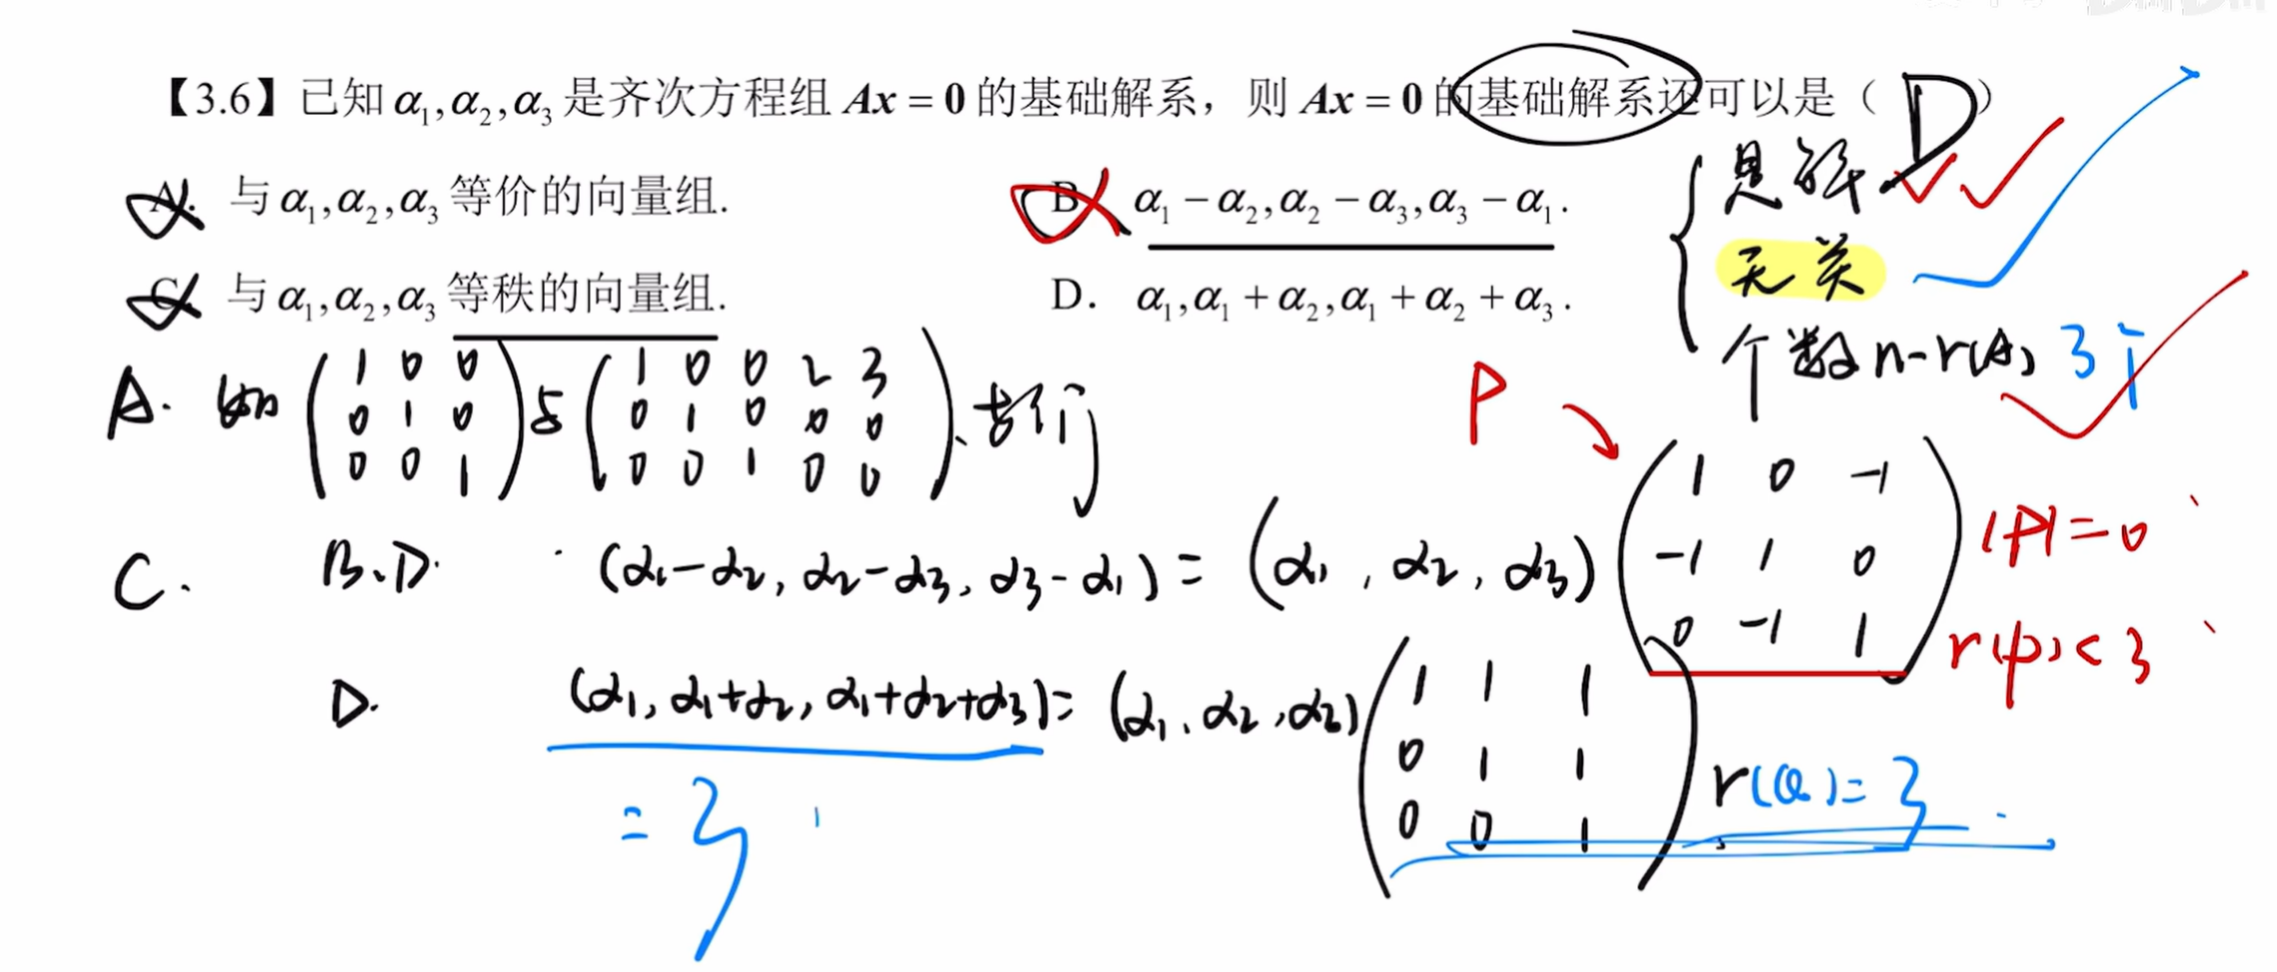 【3.6】已知 α₁,α₂,α₃ 是齐次方程组 Ax = 0 的基础解系，则 Ax = 0 的基础解系还可以是（ D ）
A. 与 α₁,α₂,α₃ 等价的向量组.
B. α₁ − α₂,α₂ − α₃,α₃ − α₁.
C. 与 α₁,α₂,α₃ 等秩的向量组.
D. α₁,α₁ + α₂,α₁ + α₂ + α₃.
是解
无关
个数 n-r(A) 3个
A. 如 ( 1 0 0 与 ( 1 0 0 2 3
0 1 0 0 1 0 0 0
0 0 1 ) 0 0 1 0 0 )
P
C. B、D. (α₁-α₂, α₂-α₃, α₃-α₁) = (α₁, α₂, α₃) ( 1 0 -1
-1 1 0
0 -1 1 )
|P|=0
r(P)<3
D. (α₁, α₁+α₂, α₁+α₂+α₃)= (α₁、α₂,α₃) ( 1 1 1
0 1 1
0 0 1 )
r(Q)=3
=3